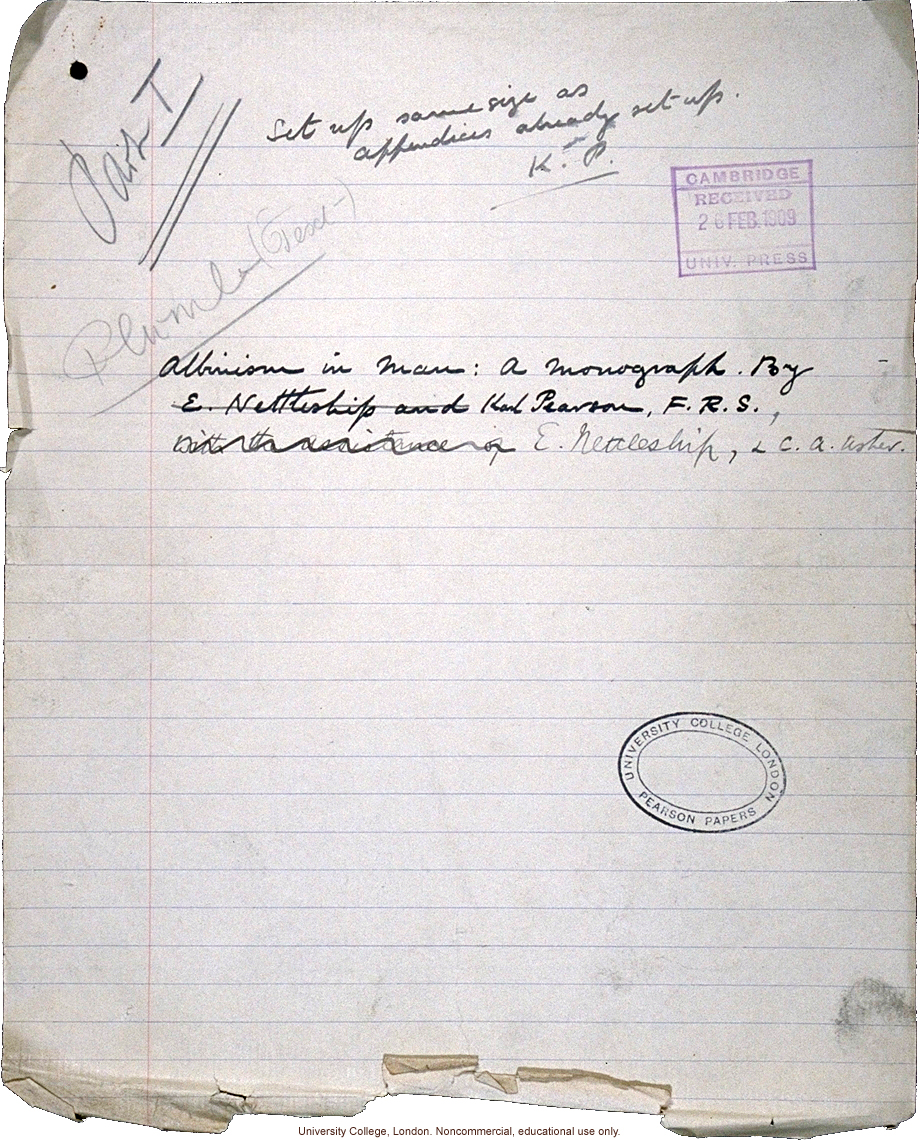 Part I
Set up same size as
appendices already set up.
K. P.
CAMBRIDGE
RECEIVED
26 FEB. 1909
UNIV. PRESS
(Text)
Albinism in Man: A Monograph. By
E. Nettleship and Karl Pearson, F.R.S.,
With the assistance of E. Nettleship, & C. A. Usher.
UNIVERSITY COLLEGE LONDON
PEARSON PAPERS
University College, London. Noncommercial, educational use only.